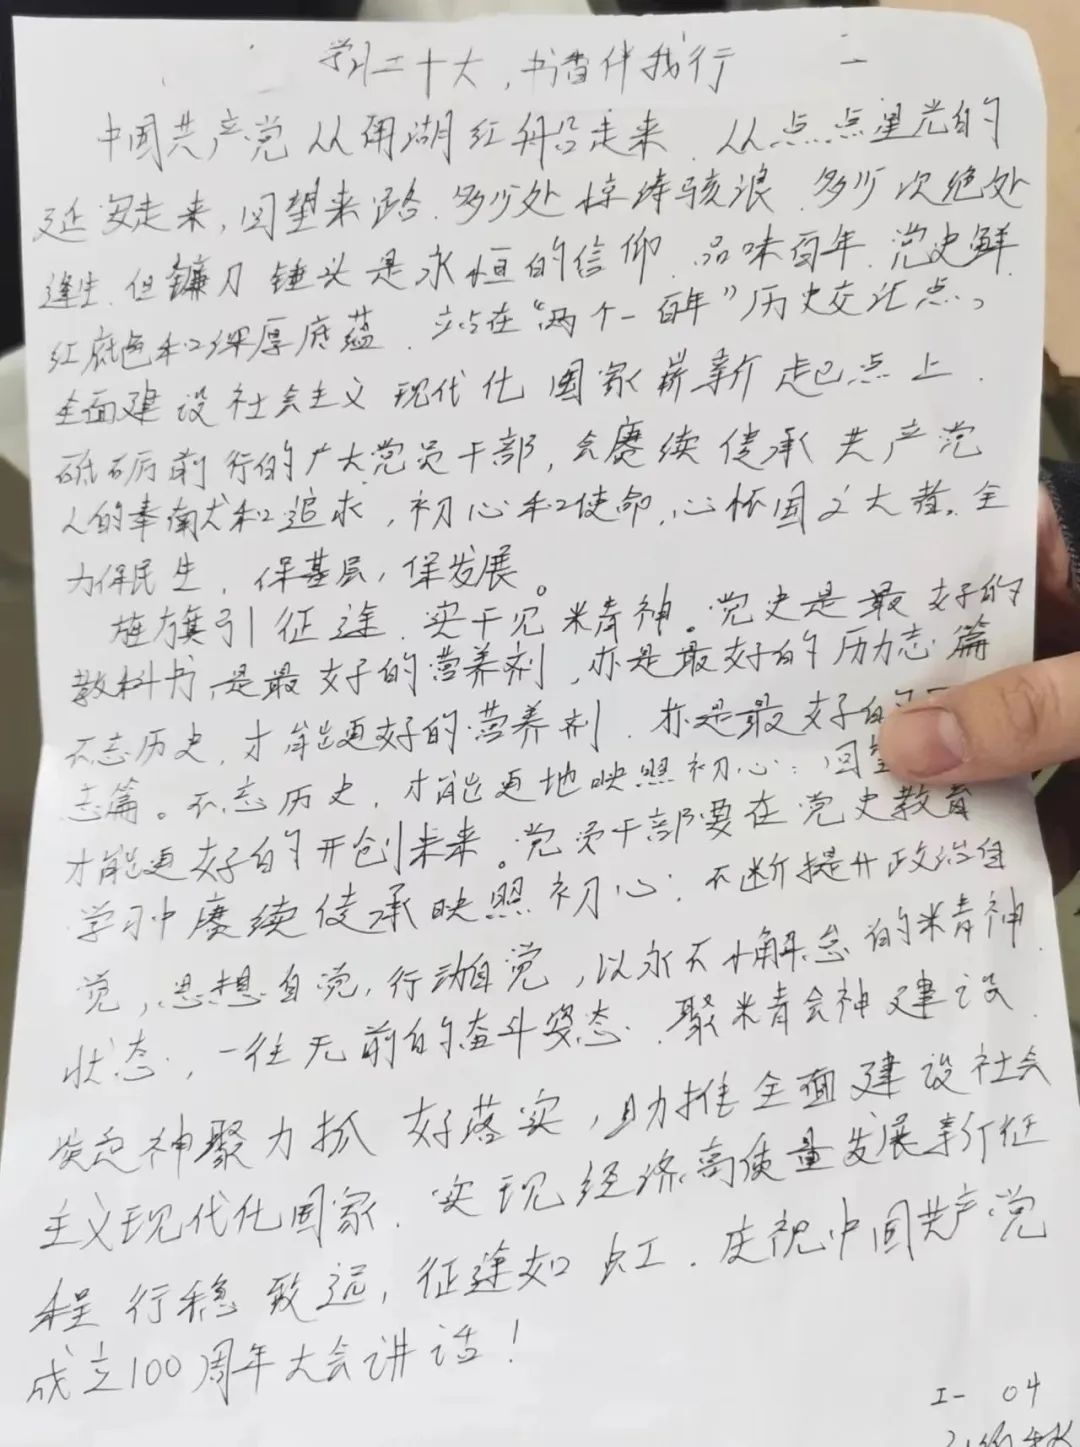 学习二十大，书香伴我行 二
中国共产党从南湖红船走来，从点点星光的
延安走来，回望来路，多少处惊涛骇浪，多少次绝处
逢生，但镰刀锤头是永恒的信仰，品味百年党史鲜
红底色和深厚底蕴，站在“两个一百年”历史交汇点，
全面建设社会主义现代化国家崭新起点上，
砥砺前行的广大党员干部，会赓续传承共产党
人的奉献和追求，初心和使命，心怀国之大者，全
力保民生，保基层，保发展。
旌旗引征途，实干见精神。党史是最好的
教科书，是最好的营养剂，亦是最好的历志篇
不忘历史，才能更好的营养剂，亦是最好的
志篇。不忘历史，才能更地映照初心：回望
才能更好的开创未来。党员干部要在党史教育
学习中赓续传承映照初心：不断提升政治自
觉，思想自觉，行动自觉，以永不懈怠的精神
状态，一往无前的奋斗姿态，聚精会神建设，
神聚力抓好落实，助推全面建设社会
主义现代化国家，实现经济高质量发展新征
程行稳致远，征途如虹，庆祝中国共产党
成立100周年大会讲话！
04